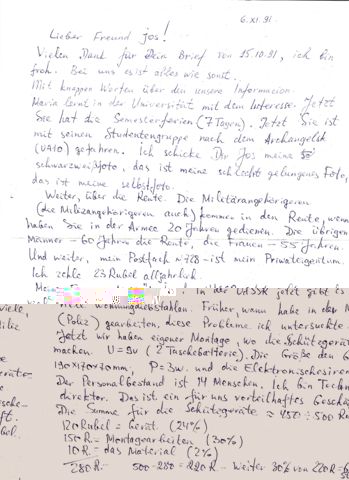 6.XI.91.
Lieber Freund Jos!
Vielen Dank für Dein Brief von 15.10.91, ich bin
froh. Bei uns es ist alles wie sonst.
Mit knappen Worten über den unsere Information.
Maria lernt in der Universität mit dem Interesse. Jetzt
Sie hat die Semesterferien (7 Tagen). Jetzt Sie ist
mit seinen Studentengruppe nach dem Archangelsk
gefahren. Ich schicke Dir Jos meine
schwarzweißfoto, das ist meine schlecht gelungenes Foto,
das ist meine selbstfoto.
Weiter, über die Rente. Die Militärangehörigeren
(die Milizangehörigeren auch) kommen in den Rente, wenn
haben Sie in der Armee 20 Jahren gedienen. Die übrigen
Männer - 60 Jahren die Rente, die Frauen - 55 Jahren.
Und weiter, mein Postfach N 728 - ist mein Privateigentum.
Ich zahle 23 Rubel alljährlich.
in der UdSSR jetzt gibt es
viele Wohnungdiebstahlen. Früher, wann habe in der M
(Poliz) gearbeiten, diese Probleme ich untersuchte.
Jetzt wir haben eigener Montage, wo die Schützgeräte
machen. U = 9v (2 Taschebatterie). Die Große den G
190x140x70mm, P = 3w. und die Elektronschesiren
Der Personalbestand ist 14 Menschen. Ich bin Techn
direktor. Das ist ein für uns vorteilhaftes Geschä
Die Summe für die Schützgeräte ≈ 450 ÷ 500 Ru
120 Rubel = Gerät. (24%)
150 R. = Montagearbeiten (30%)
10 R. = das Material (2%)
280 R. 500-280 = 220 R. - Weiter 30% von 220 R = 6